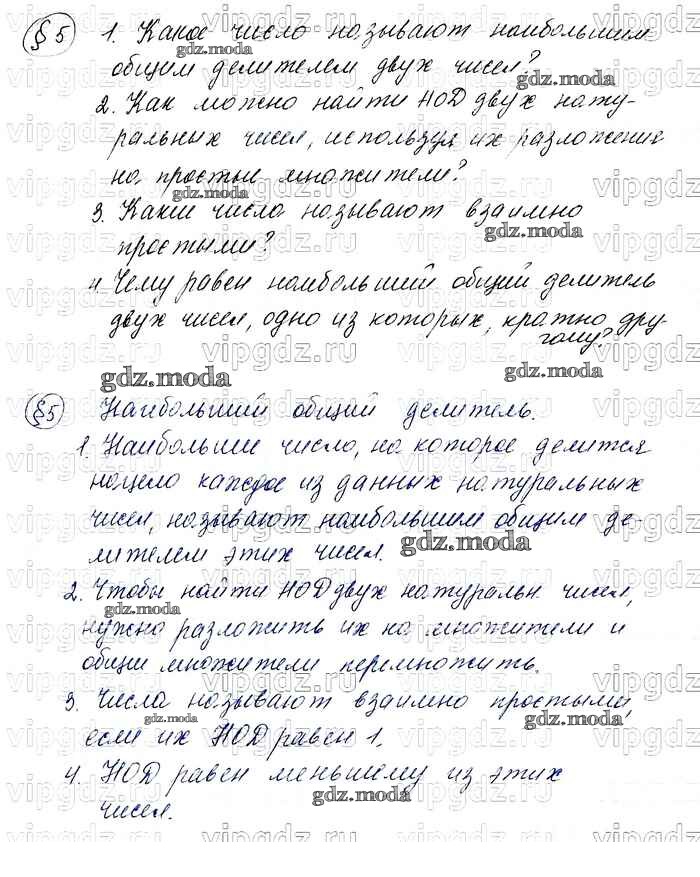 §5 1. Какое число называют наибольшим
общим делителем двух чисел?
2. Как можно найти НОД двух нату-
ральных чисел, используя их разложения
на простые множители?
3. Какие числа называют взаимно
простыми?
4. Чему равен наибольший общий делитель
двух чисел, одно из которых, кратно дру-
гому?
gdz.moda
§5 Наибольший общий делитель.
1. Наибольшее число, на которое делится
нацело каждое из данных натуральных
чисел, называют наибольшим общим де-
лителем этих чисел.
2. Чтобы найти НОД двух натуральн чисел,
нужно разложить их на множители и
общие множители перемножить.
3. Числа называют взаимно простыми,
если их НОД равен 1.
4. НОД равен меньшему из этих
чисел.
vipgdz.ru